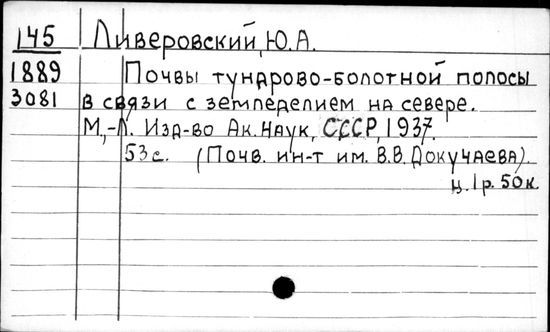 145 Ливеровский, Ю.А.
1889 Почвы тундрово-болотной полосы
3081 в связи с земледелием на севере.
М,-Л. Изд-во Ак. Наук, СССР, 1937.
53 с. (Почв. ин-т им. В.В. Докучаева).
ц. 1 р. 50 к.